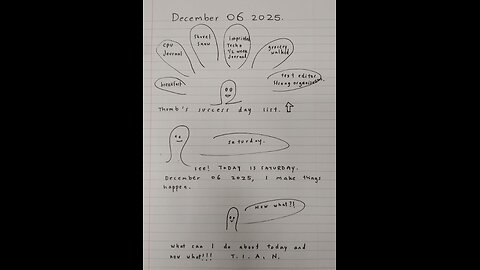 December 06 2025.
cpu
journal
shovel
snow
imprinted
techo
1/2 week
journal
grocery
walked
breakfast
text editor
strong organization.
Thumb's success day list.
Saturday.
see! TODAY IS SATURDAY.
December 06 2025, I make things
happen.
now what?!
what can I do about today and
now what!!! T. I. A. N.